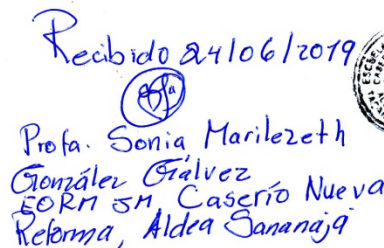 Recibido 24/06/2019
Profa. Sonia Marilezeth
González Gálvez
EORM JM, Caserío Nueva
Reforma, Aldea Sananajá